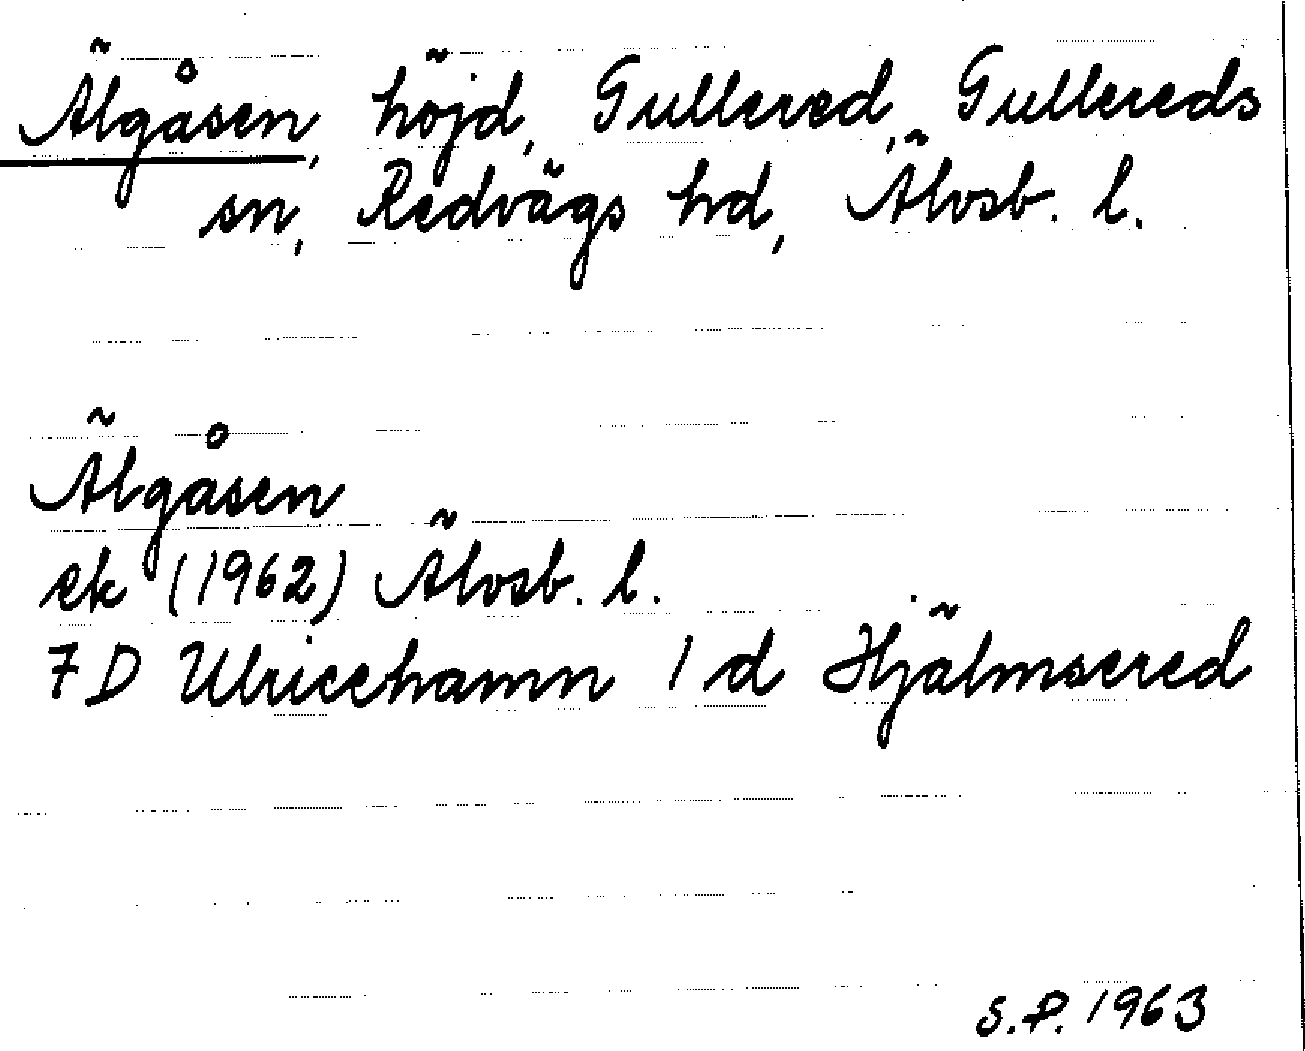 Älgåsen, höjd, Gullered, Gullereds
sn, Redvägs hd, Älvsb. l.
Älgåsen
ek (1962) Älvsb. l.
7D Ulricehamn 1 d Hjälmsered
S.P. 1963